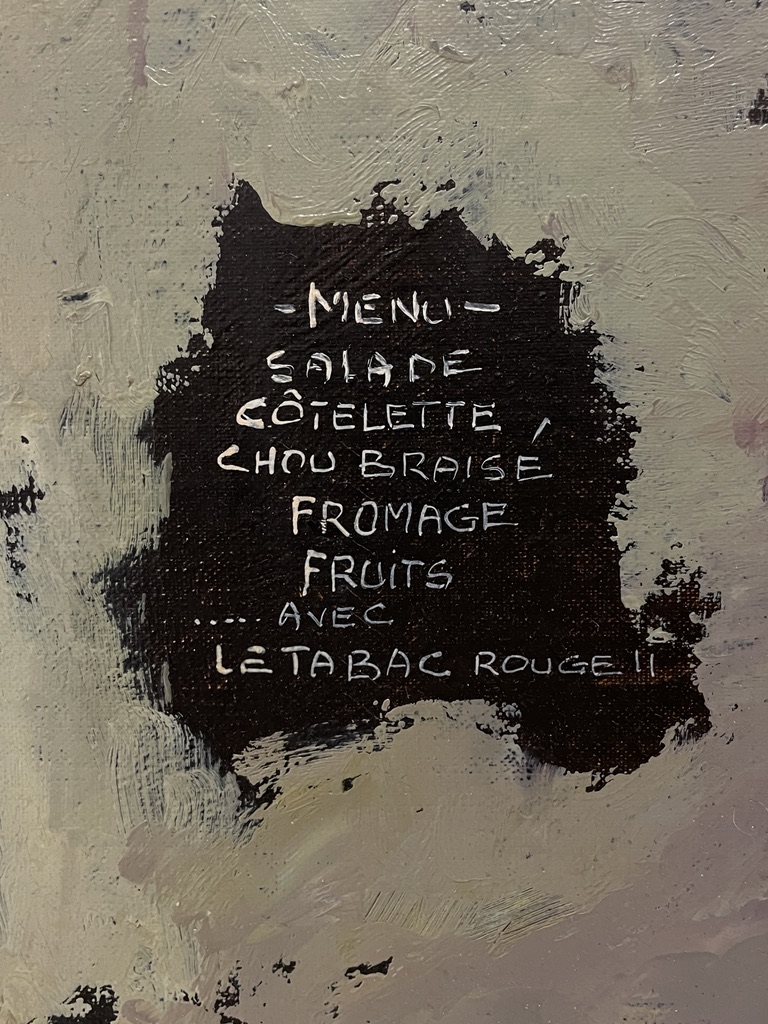 - MENU -
SALADE
CÔTELETTE,
CHOU BRAISÉ
FROMAGE
FRUITS
..... AVEC
LE TABAC ROUGE !!